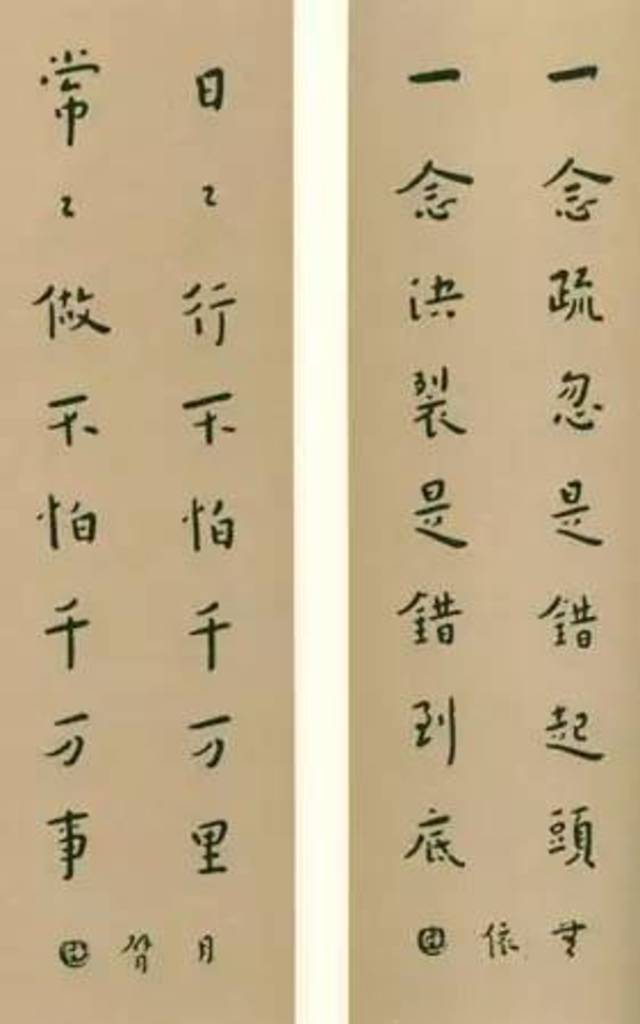 一念疏忽是錯起頭
一念決裂是錯到底
無依
日〻行不怕千万里
常〻做不怕千万事
月臂